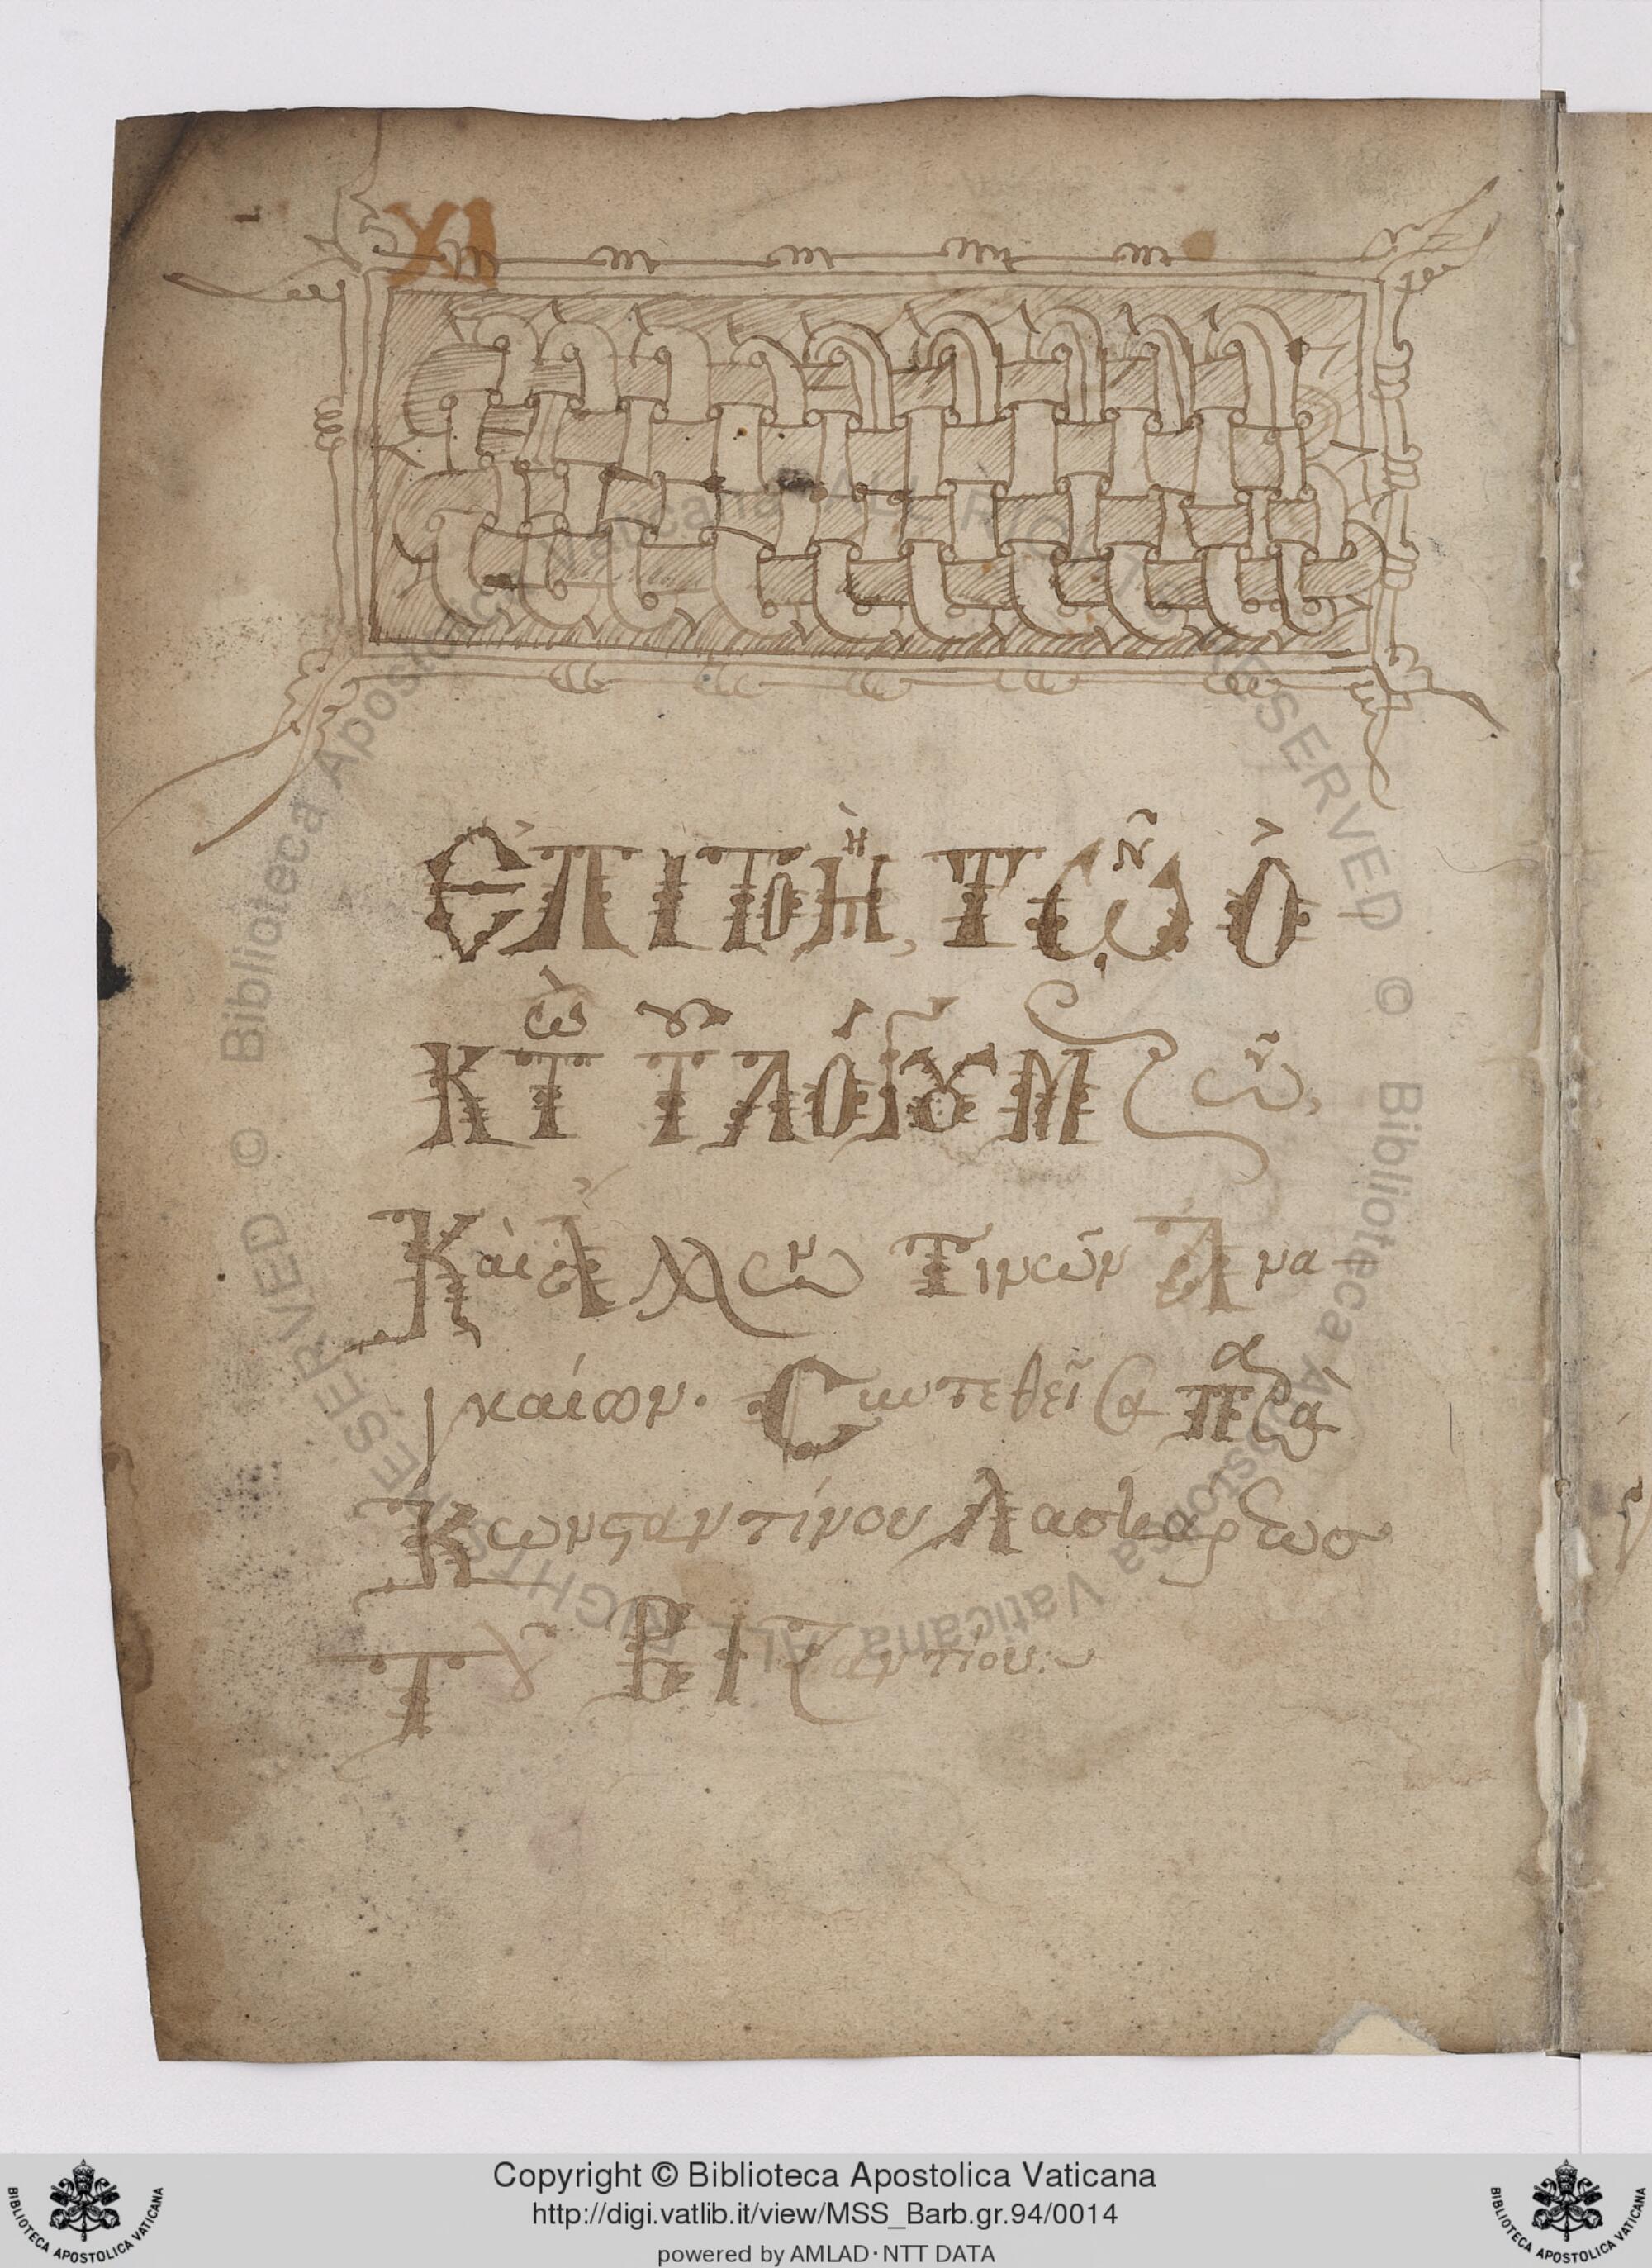 XI
ἘΠΙΤΟΜῊ ΤῶΝ Ὀ
ΚΤῺ ΤΟΥ͂ ΛΌΓΟΥ ΜερῶΝ,
Καὶ Ἄλλων Τινῶν Ἀνα
γκαίων. Συντεθεῖσα παρὰ
Κωνσταντίνου Λασκάρεως
Τοῦ ΒΙζαντίου:~
© Biblioteca Apostolica Vaticana ALL RIGHTS RESERVED
© Biblioteca Apostolica Vaticana ALL RIGHTS RESERVED
Copyright © Biblioteca Apostolica Vaticana
http://digi.vatlib.it/view/MSS_Barb.gr.94/0014
powered by AMLAD·NTT DATA
BIBLIOTECA APOSTOLICA VATICANA
BIBLIOTECA APOSTOLICA VATICANA